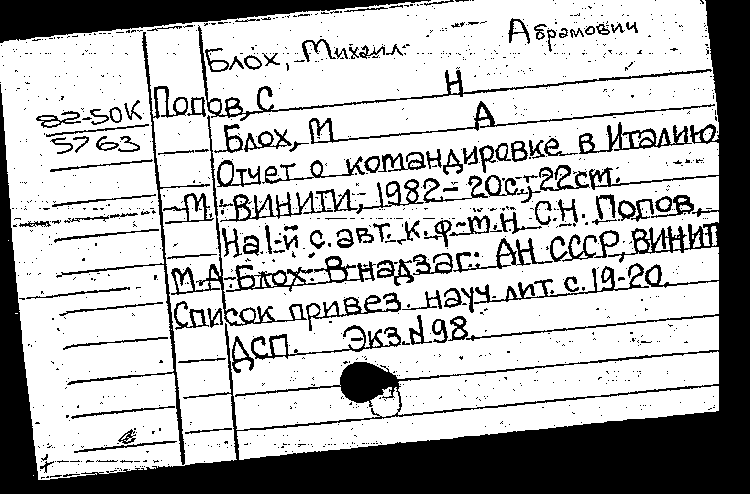 Блох, Михаил Абрамович
82-50К
5763
Попов, С Н
Блох, М А
Отчет о командировке в Италию
М.: ВИНИТИ, 1982.- 20с.; 22cm.
На 1-й с. авт. к.ф-м.н. С.Н. Попов,
М.А. Блох. В надзаг.: АН СССР, ВИНИТ
Список привез. науч. лит. с. 19-20.
ДСП. Экз.N98.